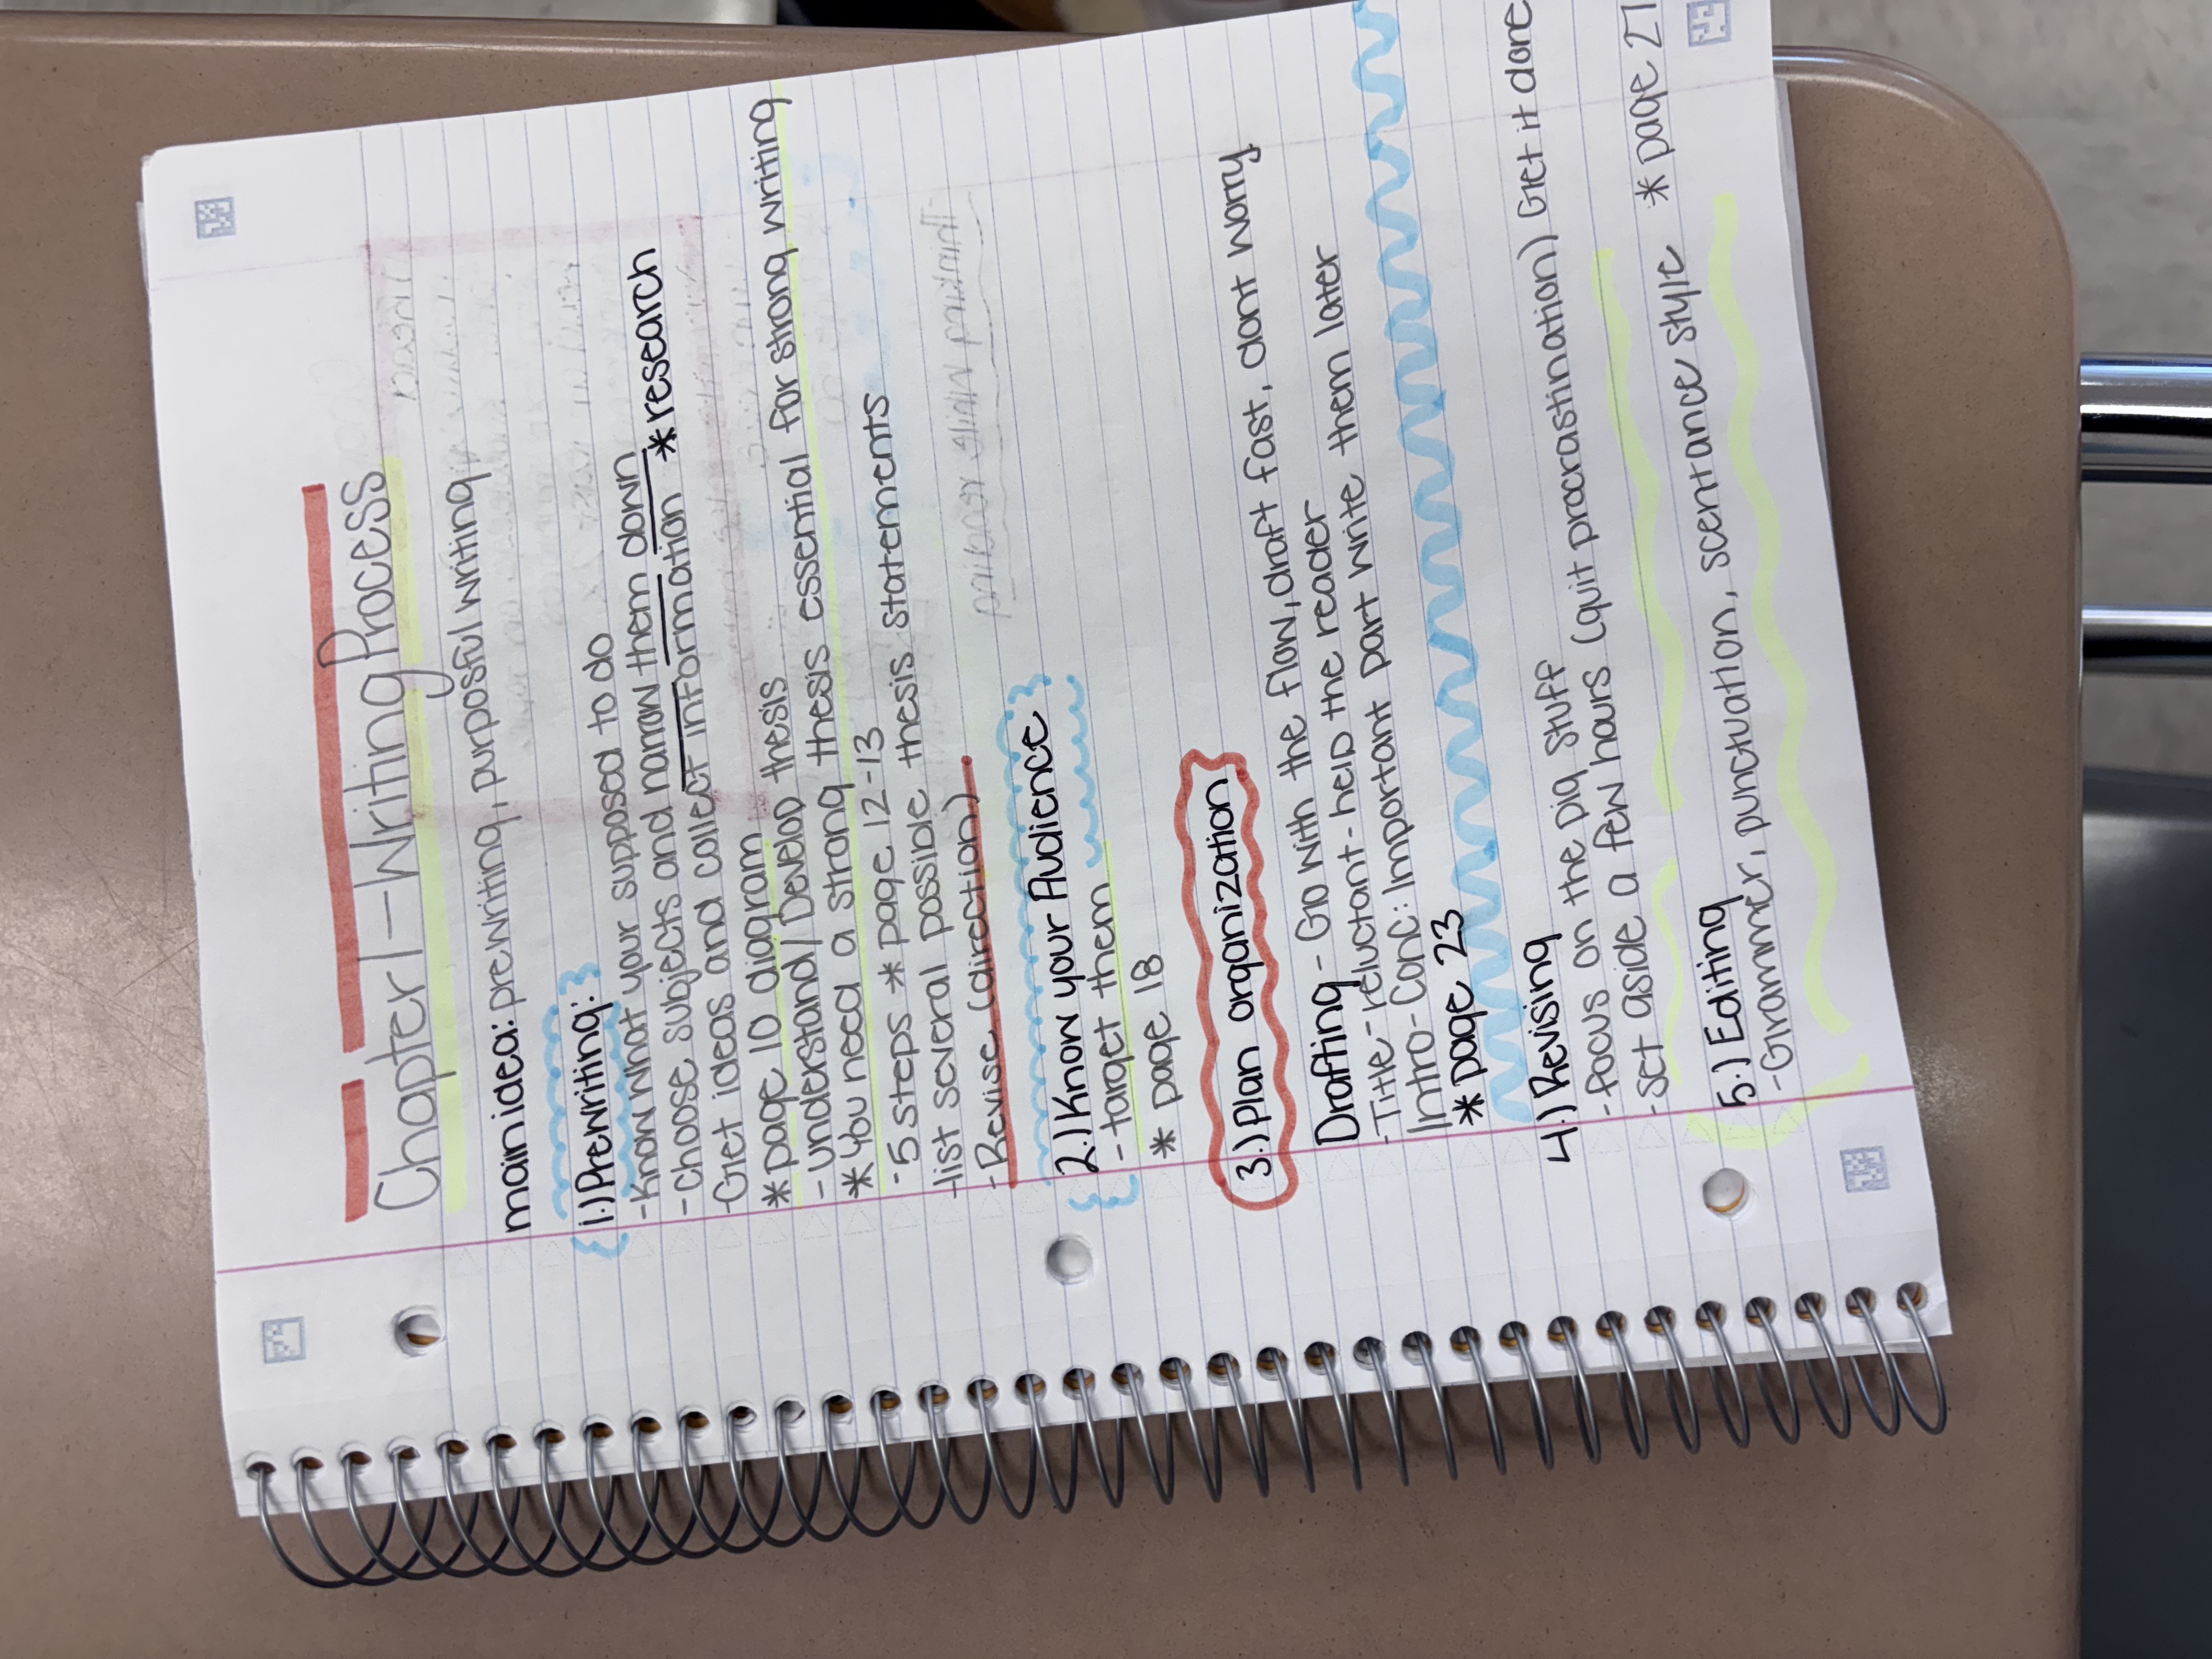 Chapter 1 - Writing Process
main idea: prewriting, purposful writing
1.) Prewriting:
- Know what your supposed to do
- Choose subjects and narrow them down
- Get ideas and collect information *research
* page 10 diagram
- understand / Develop thesis
* You need a strong thesis essential for strong writing
- 5 steps * page 12-13
- list several possible thesis statements
- Revise (direction)
2.) Know your Audience
- target them
* page 18
3.) Plan organization
Drafting - Go with the flow, draft fast, dont worry
- Title - reluctant - help the reader
Intro - Conc: Important part write them later
* page 23
4.) Revising
- focus on the big stuff
- Set aside a few hours (quit procrastination) Get it done
5.) Editing * page 27
- Grammer, punctuation, scentrance style